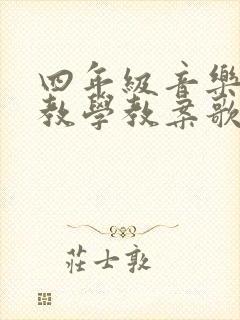 四年級音樂
教學教案歌
莊士敦